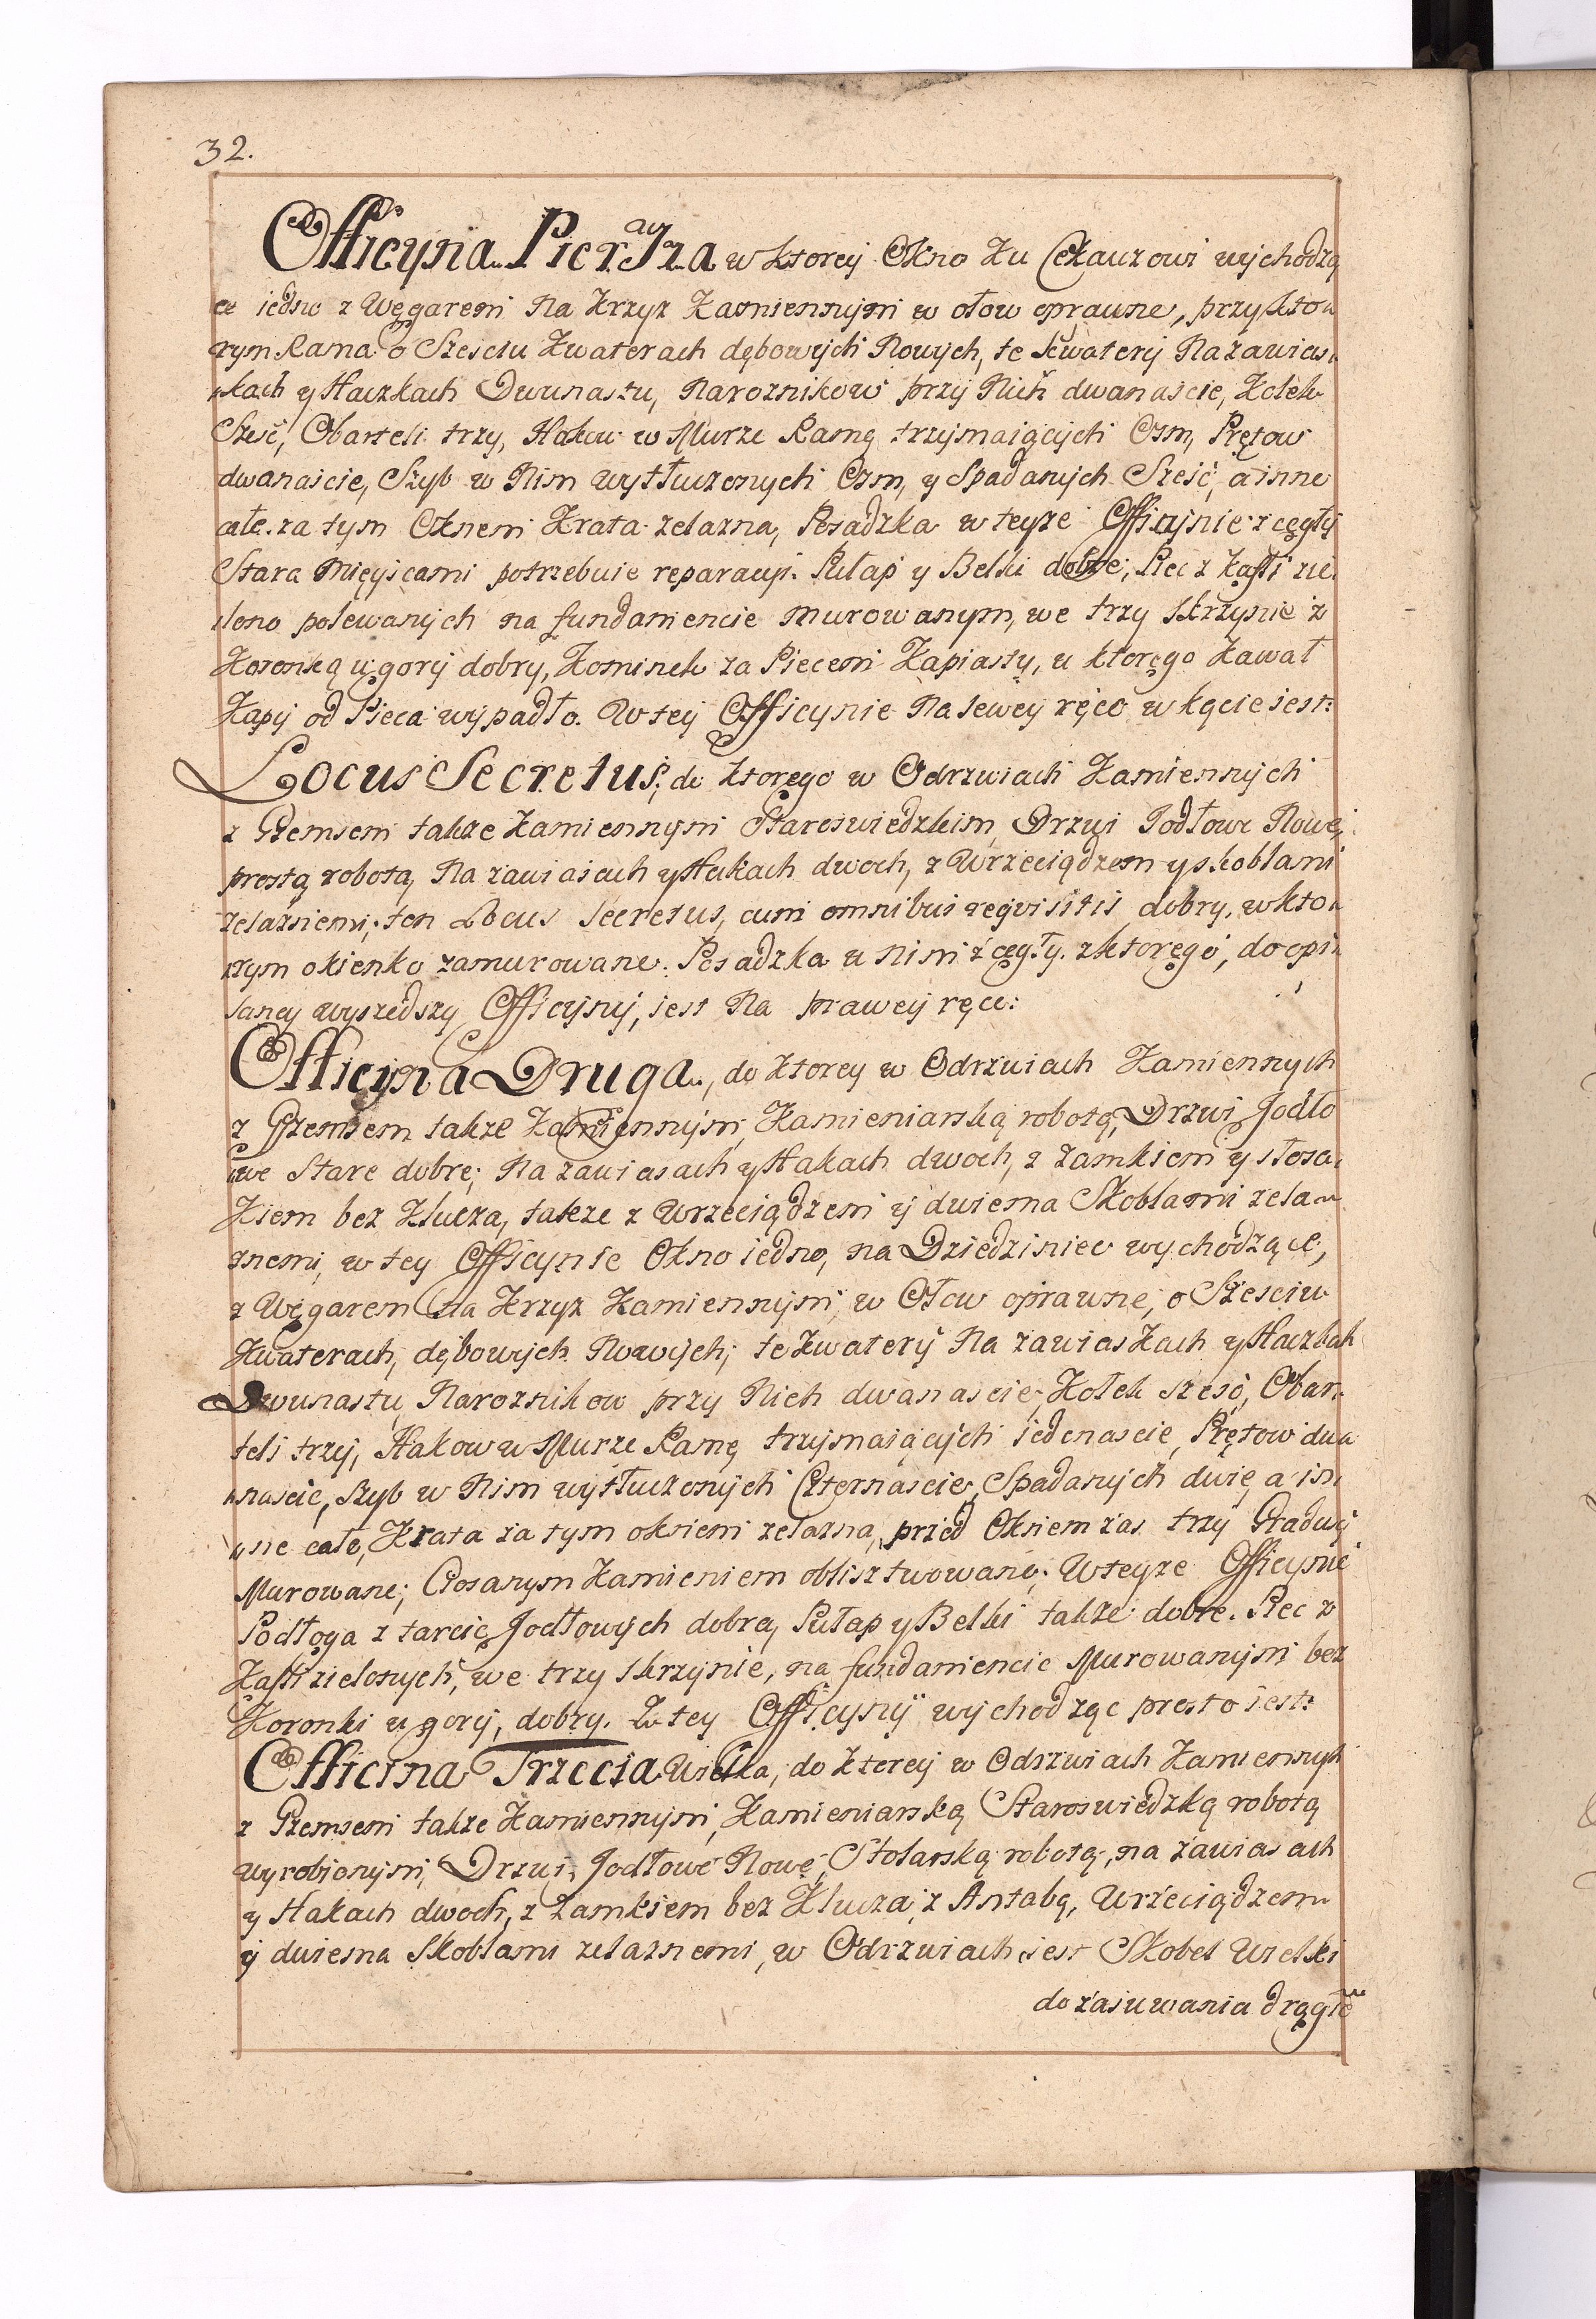 32.
Officyna Pierwsza w ktorey Okno ku Cekauzowi wychodzą
ce iedno z Węgarem Na krzyz kamiennym w ołow oprawne, przy kto
rym Rama o Szesciu kwaterach dębowych Nowych, te kwatery Na zawias
kach y Haczkach Dwunastu, Naroznikow przy Nich dwanascie, Kołek
Szesć, Obarteli trzy, Hakow w Murze Ramę trzymaiących Osm, Prętow
dwanascie, Szyb w Nim wytłuczonych Osm, y Spadanych Szesć, a inne
całe. za tym Oknem Krata zelazna, Posadzka w teyze Officynie z cęgły
Stara Mieyscami potrzebuie reparacyi. Pułap y Belki dobre, Piec z kafli zie
lono polewanych na fundamencie murowanym, we trzy skrzynie z
Koronką u gory dobry, Kominek za Piecem Kapiasty, u ktorego kawał
Kapy od Pieca wypadło. W tey Officynie Na lewey ręce w kącie iest:
Locus Secretus, do ktorego w Odrzwiach Kamiennych
z Gzemsem takze kamiennym Staroswiedzkim, Drzwi Jodłowe Nowe,
prostą robotą, Na zawiasach y Hakach dwoch, z Wrzeciądzem y skoblami
zelaznemi, ten Locus Secretus, cum omnibus reqvisitis dobry, w kto
rym okienko zamurowane. Posadzka w nim z cęgły. z ktorego, do opi
saney wyszedszy Officyny, iest Na prawey ręce:
Officyna Druga, do ktorey w Odrzwiach Kamiennych
z Gzemsem takze kamiennym, Kamieniarską robotą, Drzwi Jodło
we Stare dobre, Na zawiasach y Hakach dwoch, z zamkiem y słosa
kiem bez Klucza, takze z Wrzeciądzem y dwiema Skoblami zela
znemi, w tey Officynie Okno iedno, na Dziedziniec wychodzące,
z Węgarem na Krzyz Kamiennym, w Ołow oprawne, o Szesciu
Kwaterach, dębowych Nowych, te kwatery Na zawiaskach y Haczkach
Dwunastu, Naroznikow przy Nich dwanascie, Kołek szesć, Obar
teli trzy, Hakow w Murze Ramę trzymaiących iedenascie, Prętow dwa
nascie, Szyb w Nim wytłuczonych Czternascie, Spadanych dwie, a in
ne całe, Krata za tym oknem zelazna, przed Oknem zas trzy Gradusy
Murowane, Ciosanym Kamieniem oblisztwowane. W teyze Officynie
Podłoga z tarcic Jodłowych dobra, Pułap y Belki takze dobre. Piec z
Kafli zielonych, we trzy skrzynie, na fundamencie Murowanym bez
Koronki u gory, dobry. Z tey Officyny wychodząc prosto iest:
Officina Trzecia Wielka, do ktorey w Odrzwiach Kamiennych
z Gzemsem takze Kamiennym, Kamieniarską Staroswiedzką robotą
wyrobionym, Drzwi Jodłowe Nowe, Stolarską robotą, na zawiasach
y Hakach dwoch, z zamkiem bez Klucza, z Antabą, Wrzeciądzem
y dwiema Skoblami zelaznemi, w Odrzwiach iest Skobel Wielki
do zasuwania drągiem